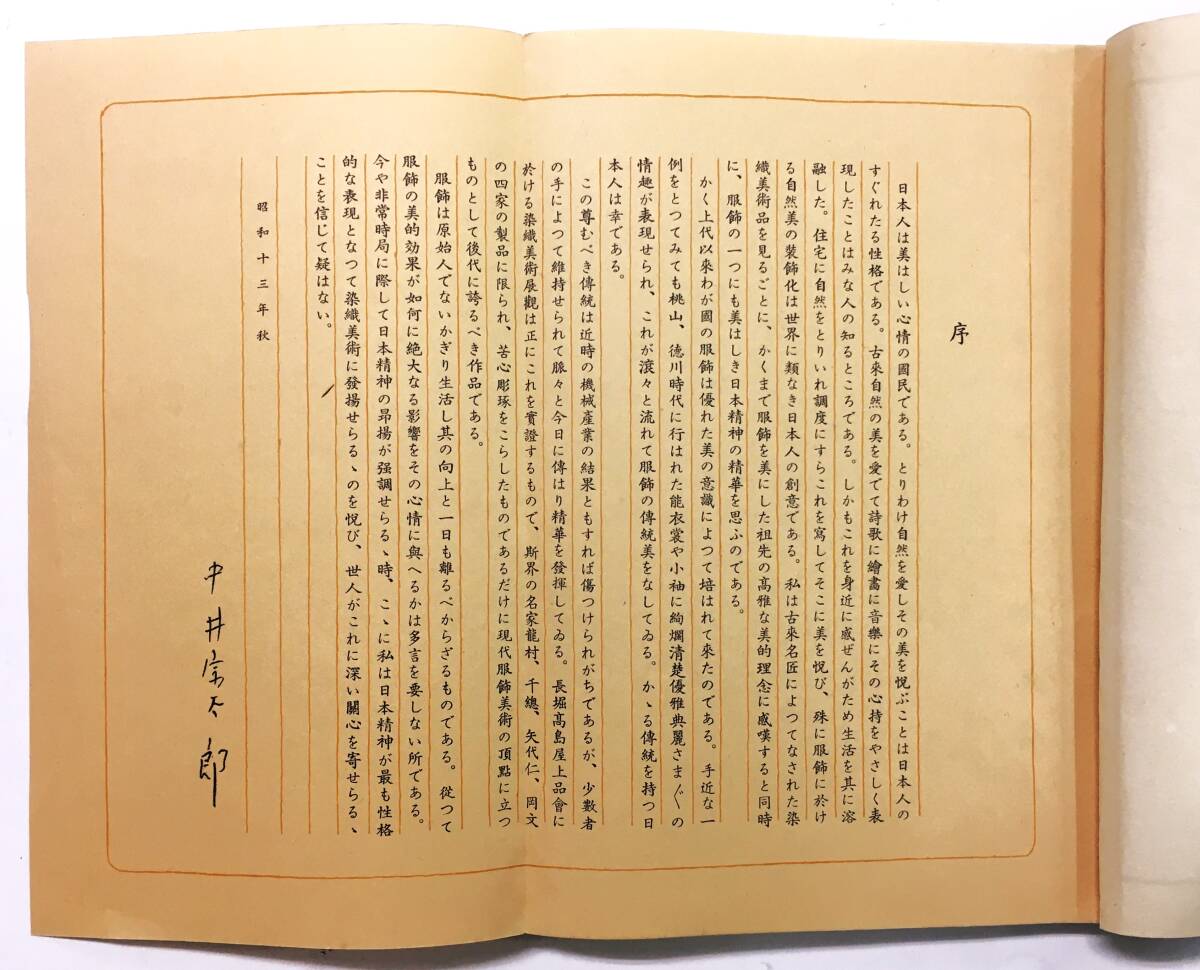 序
日本人は美はしい心情の國民である。とりわけ自然を愛しその美を悅ぶことは日本人の
すぐれたる性格である。古來自然の美を愛でて詩歌に繪畫に音樂にその心持をやさしく表
現したことはみな人の知るところである。しかもこれを身近に感ぜんがため生活を其に溶
融した。住宅に自然をとりいれ調度にすらこれを寫してそこに美を悅び、殊に服飾に於け
る自然美の裝飾化は世界に類なき日本人の創意である。私は古來名匠によつてなされた染
織美術品を見るごとに、かくまで服飾を美にした祖先の高雅な美的理念に感嘆すると同時
に、服飾の一つにも美はしき日本精神の精華を思ふのである。
かく上代以來わが國の服飾は優れた美の意識によつて培はれて來たのである。手近な一
例をとつてみても桃山、德川時代に行はれた能衣裳や小袖に絢爛清楚優雅典麗さま〲の
情趣が表現せられ、これが滾々と流れて服飾の傳統美をなしてゐる。かゝる傳統を持つ日
本人は幸である。
この尊むべき傳統は近時の機械產業の結果ともすれば傷つけられがちであるが、少數者
の手によつて維持せられて脈々と今日に傳はり精華を發揮してゐる。長堀高島屋上品會に
於ける染織美術展觀は正にこれを實證するもので、斯界の名家龍村、千總、矢代仁、岡文
の四家の製品に限られ、苦心彫琢をこらしたものであるだけに現代服飾美術の頂點に立つ
ものとして後代に誇るべき作品である。
服飾は原始人でないかぎり生活し其の向上と一日も離るべからざるものである。從つて
服飾の美的効果が如何に絶大なる影響をその心情に與へるかは多言を要しない所である。
今や非常時局に際して日本精神の昂揚が强調せらるゝ時、こゝに私は日本精神が最も性格
的な表現となつて染織美術に發揚せらるゝのを悅び、世人がこれに深い關心を寄せらるゝ
ことを信じて疑はない。
昭和十三年秋
中井宗太郎